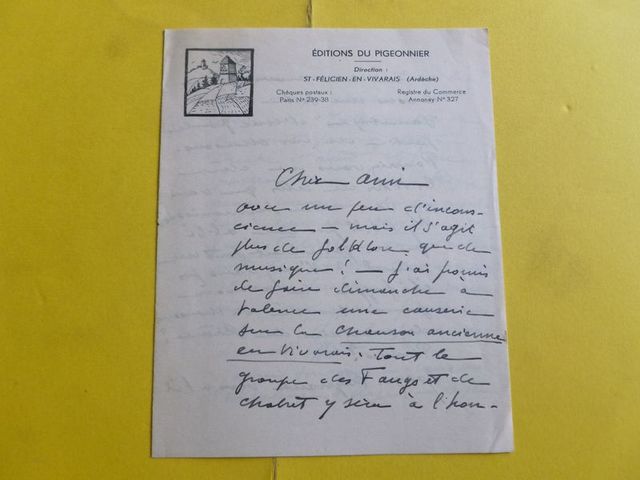 ÉDITIONS DU PIGEONNIER
Direction :
ST-FÉLICIEN-EN-VIVARAIS (Ardèche)
Chèques postaux :
Paris N° 239-38
Registre du Commerce
Annonay N° 327
Cher ami
avec un peu d'incons-
cience – mais il s'agit
plus de folklore que de
musique ! – j'ai promis
de faire dimanche à
Valence une causerie
sur la chanson ancienne
en Vivarais. Tout le
groupe des Faugs et de
Chabret y sera à l'hon-